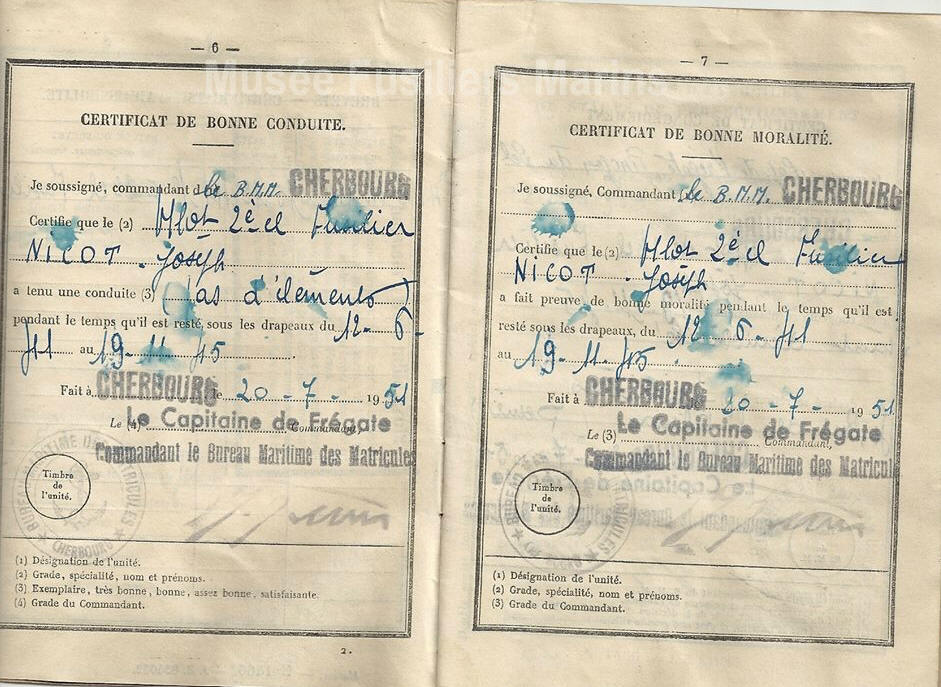 Musée Fusiliers Marins
— 6 —
CERTIFICAT DE BONNE CONDUITE.
Je soussigné, commandant le B.M.M. CHERBOURG
Certifie que le (2) Mlot 2è cl Fusilier
NICOT - Joseph
a tenu une conduite (3) (pas d'éléments)
pendant le temps qu'il est resté sous les drapeaux du 12 - 6 -
41 au 19 - 11 - 45
Fait à CHERBOURG le 20 - 7 - 1951
Le (4) Le Capitaine de Frégate Commandant,
Commandant le Bureau Maritime des Matricules
BUREAU MARITIME DES MATRICULES
CHERBOURG
Timbre
de
l'unité.
(1) Désignation de l'unité.
(2) Grade, spécialité, nom et prénoms.
(3) Exemplaire, très bonne, bonne, assez bonne, satisfaisante.
(4) Grade du Commandant.
2.
— 7 —
CERTIFICAT DE BONNE MORALITÉ.
Je soussigné, Commandant le B.M.M. CHERBOURG
Certifie que le (2) Mlot 2è cl Fusilier
NICOT - Joseph
a fait preuve de bonne moralité pendant le temps qu'il est
resté sous les drapeaux, du 12 - 6 - 41
au 19 - 11 - 45
Fait à CHERBOURG 20 - 7 - 1951
Le (3) Le Capitaine de Frégate Commandant,
Commandant le Bureau Maritime des Matricul
Timbre
de
l'unité.
(1) Désignation de l'unité.
(2) Grade, spécialité, nom et prénoms.
(3) Grade du Commandant.